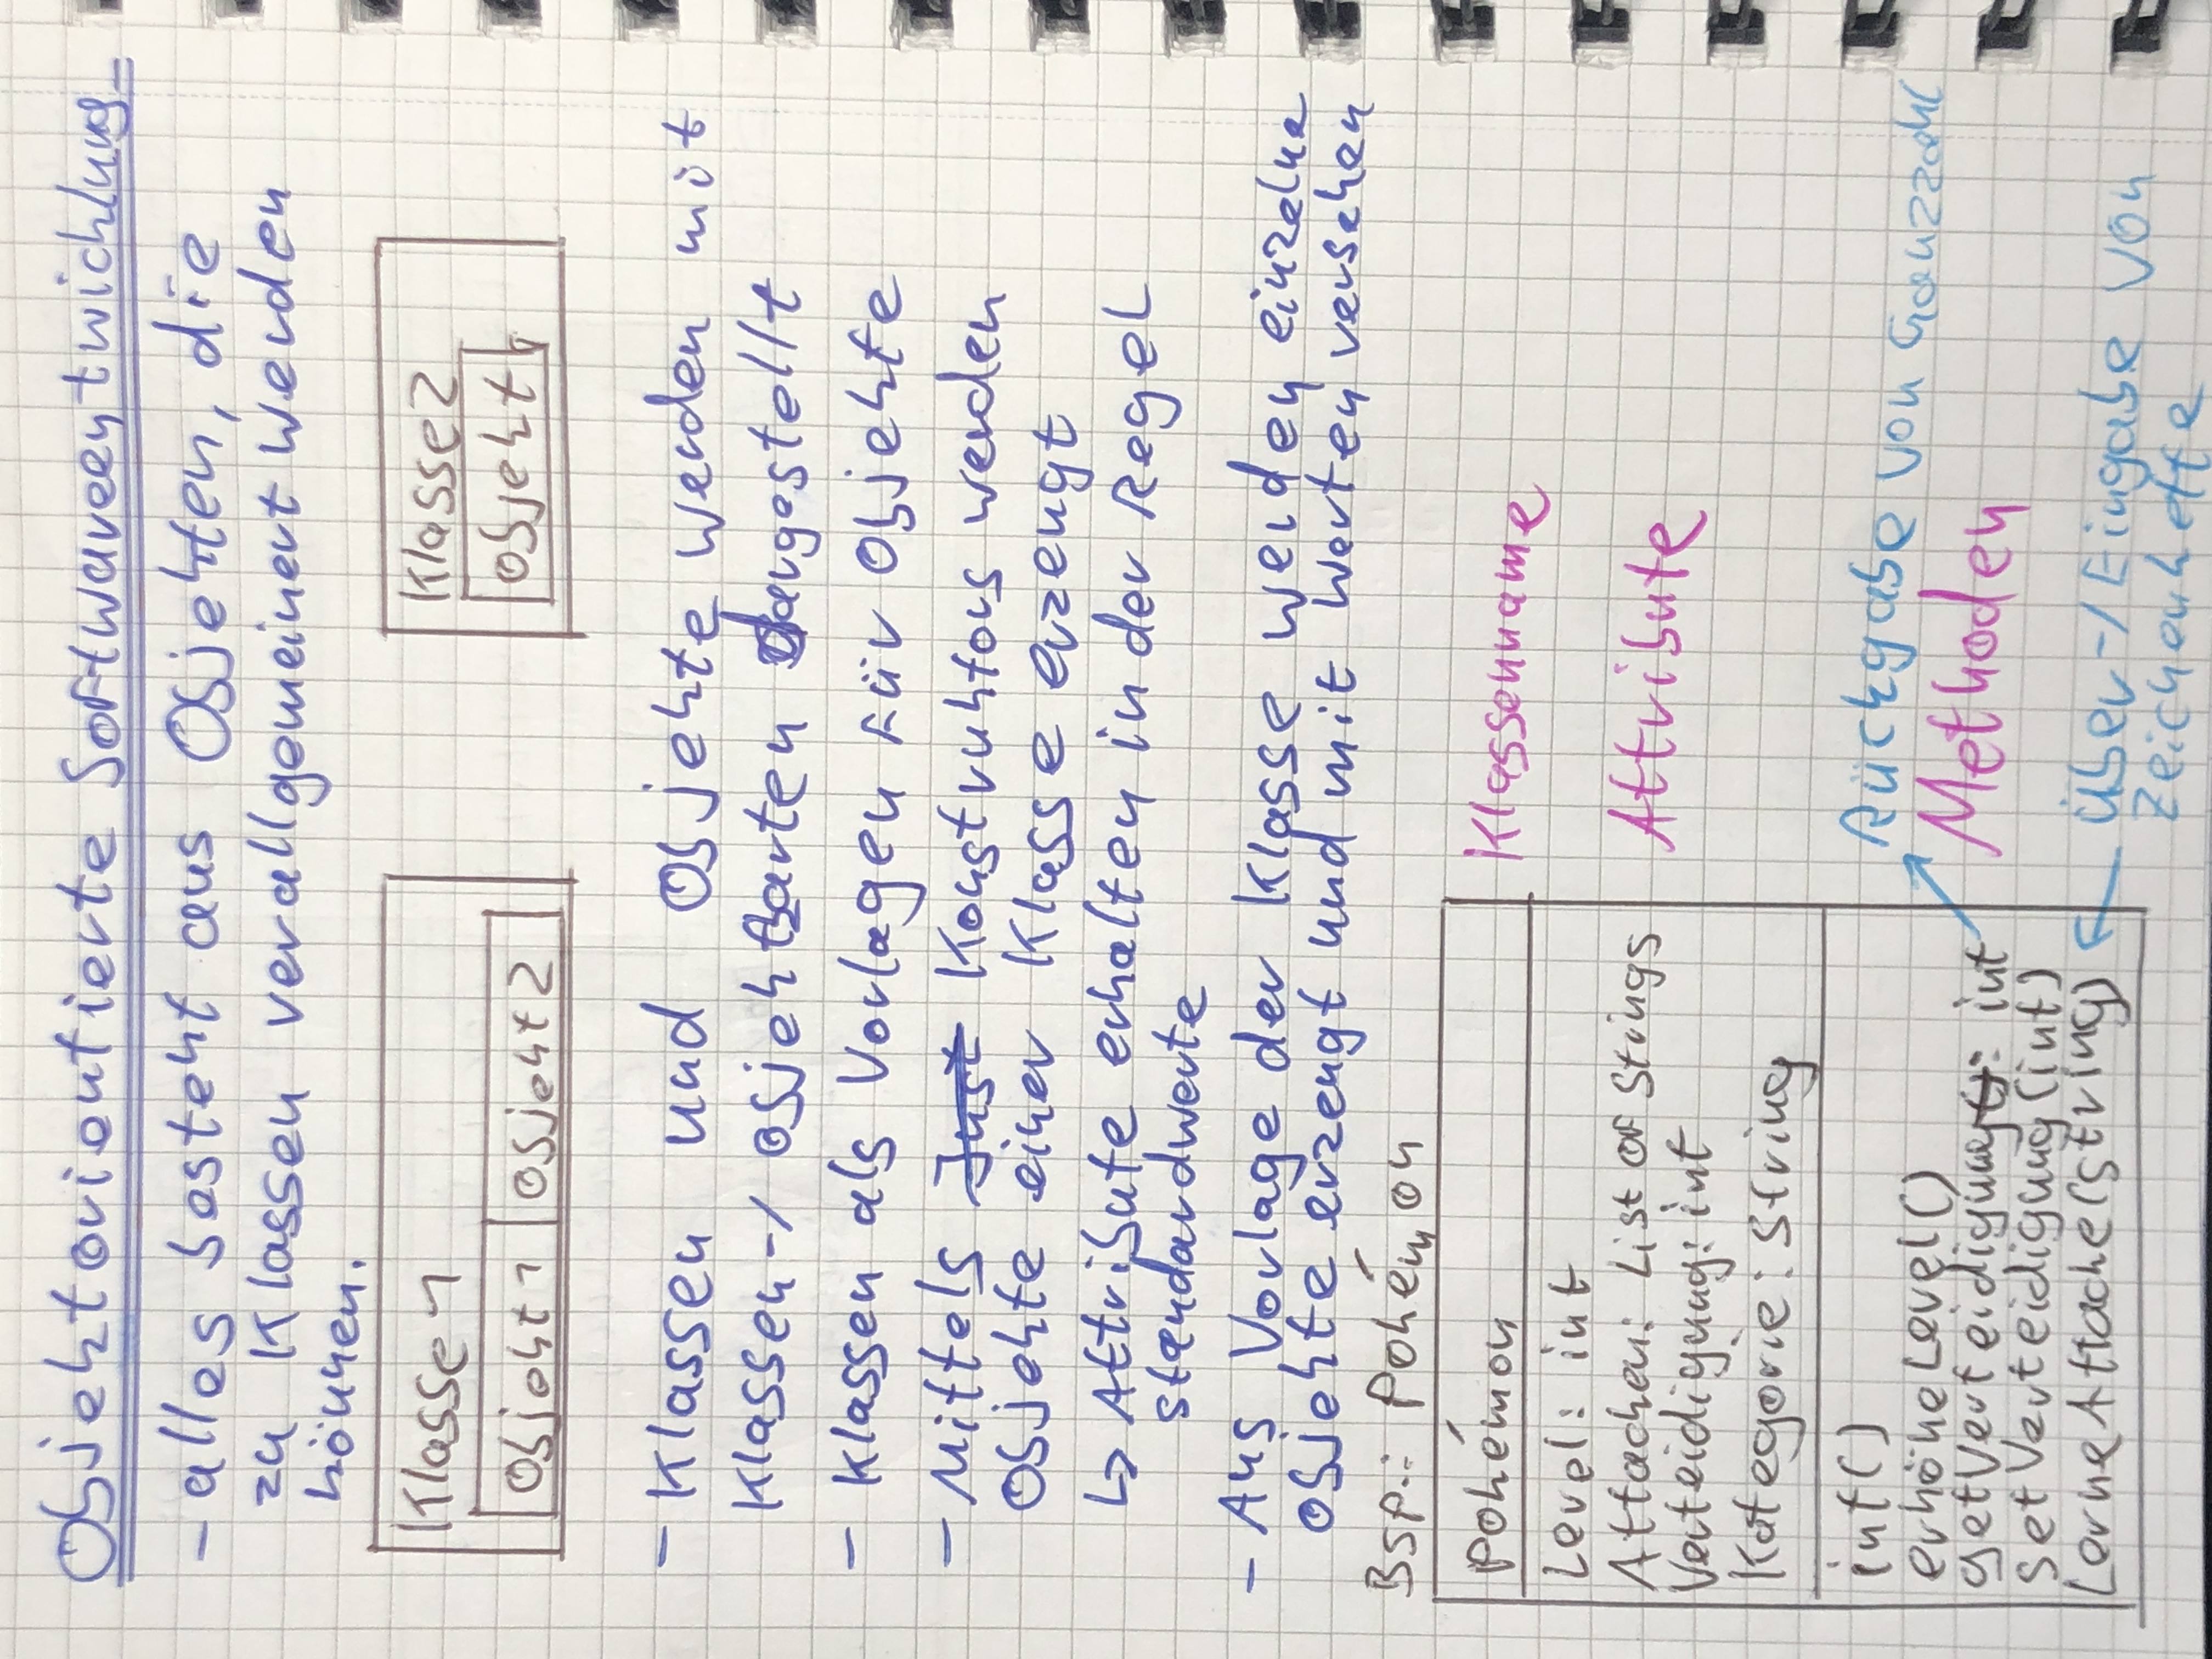 Objektorientierte Softwareentwicklung
- alles besteht aus Objekten, die
zu Klassen verallgemeinert werden
können.
Klasse 1
Objekt 1 Objekt 2
Klasse 2
Objekt 1
- Klassen und Objekte werden mit
Klassen-/ Objektkarten dargestellt
- Klassen als Vorlagen für Objekte
- Mittels Inst Konstruktors werden
Objekte einer Klasse erzeugt
↳ Attribute erhalten in der Regel
Standardwerte
- Aus Vorlage der Klasse werden einzelne
Objekte erzeugt und mit Werten versehen
Bsp.: Pokémon
Pokémon
Klassenname
Level: int
Attacken: List of Strings
Attribute
Verteidigung: int
Kategorie: String
int()
Rückgabe von Ganzzahl
erhöheLevel()
getVerteidigung(): int
Methoden
setVerteidigung(int)
LerneAttacke(string)
Über-/Eingabe von
Zeichenkette